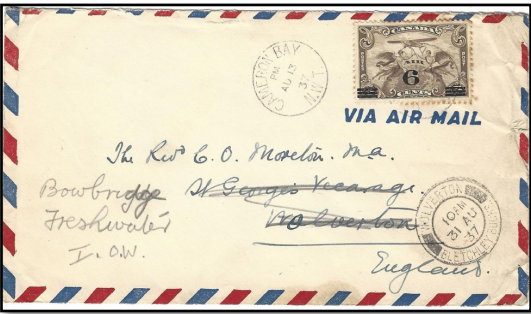 CAMERON BAY
PM
AU 13
37
N.W.T.
CANADA
AIR
6
CENTS
VIA AIR MAIL
The Revd C. O. Moreton. M.a.
St George's Vicarage
Wolverton
England.
Bowbridge
Freshwater
I.O.W.
WOLVERTON
10 PM
31 AU
37
BLETCHLEY BUCKS